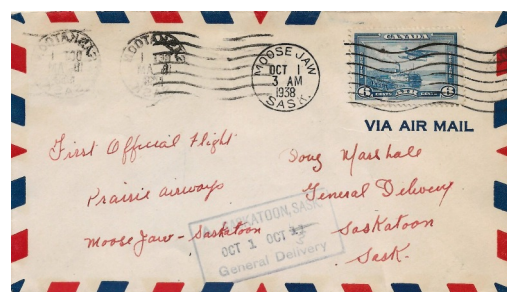 MOOSE JAW
OCT 1
3 AM
1938
SASK.
CANADA
6 CENTS AIR CENTS 6
VIA AIR MAIL
First Official Flight
Prairie Airways
Moose Jaw - Saskatoon
Doug Marshall
General Delivery
Saskatoon
Sask.
SASKATOON, SASK.
OCT 1 OCT
General Delivery